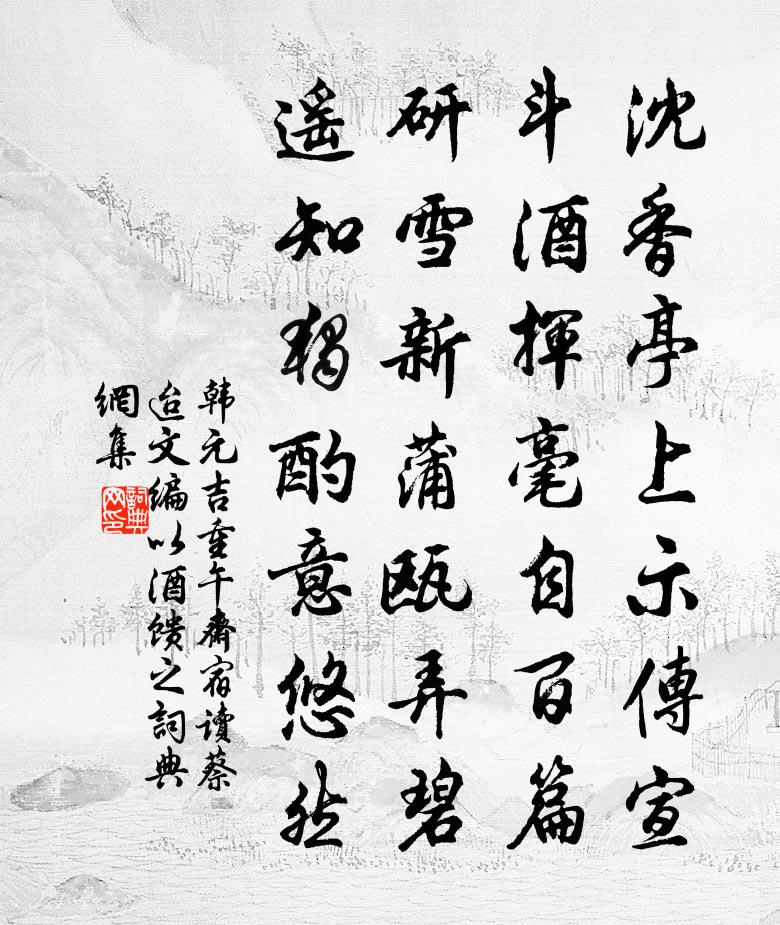 沈香亭上示傳宣
斗酒揮毫自百篇
研雪新蒲甌弄碧
遥知獨酌意悠然
韩元吉重午齋宿读蔡
迨文编以酒馈之詞典
網集
詞典
网印